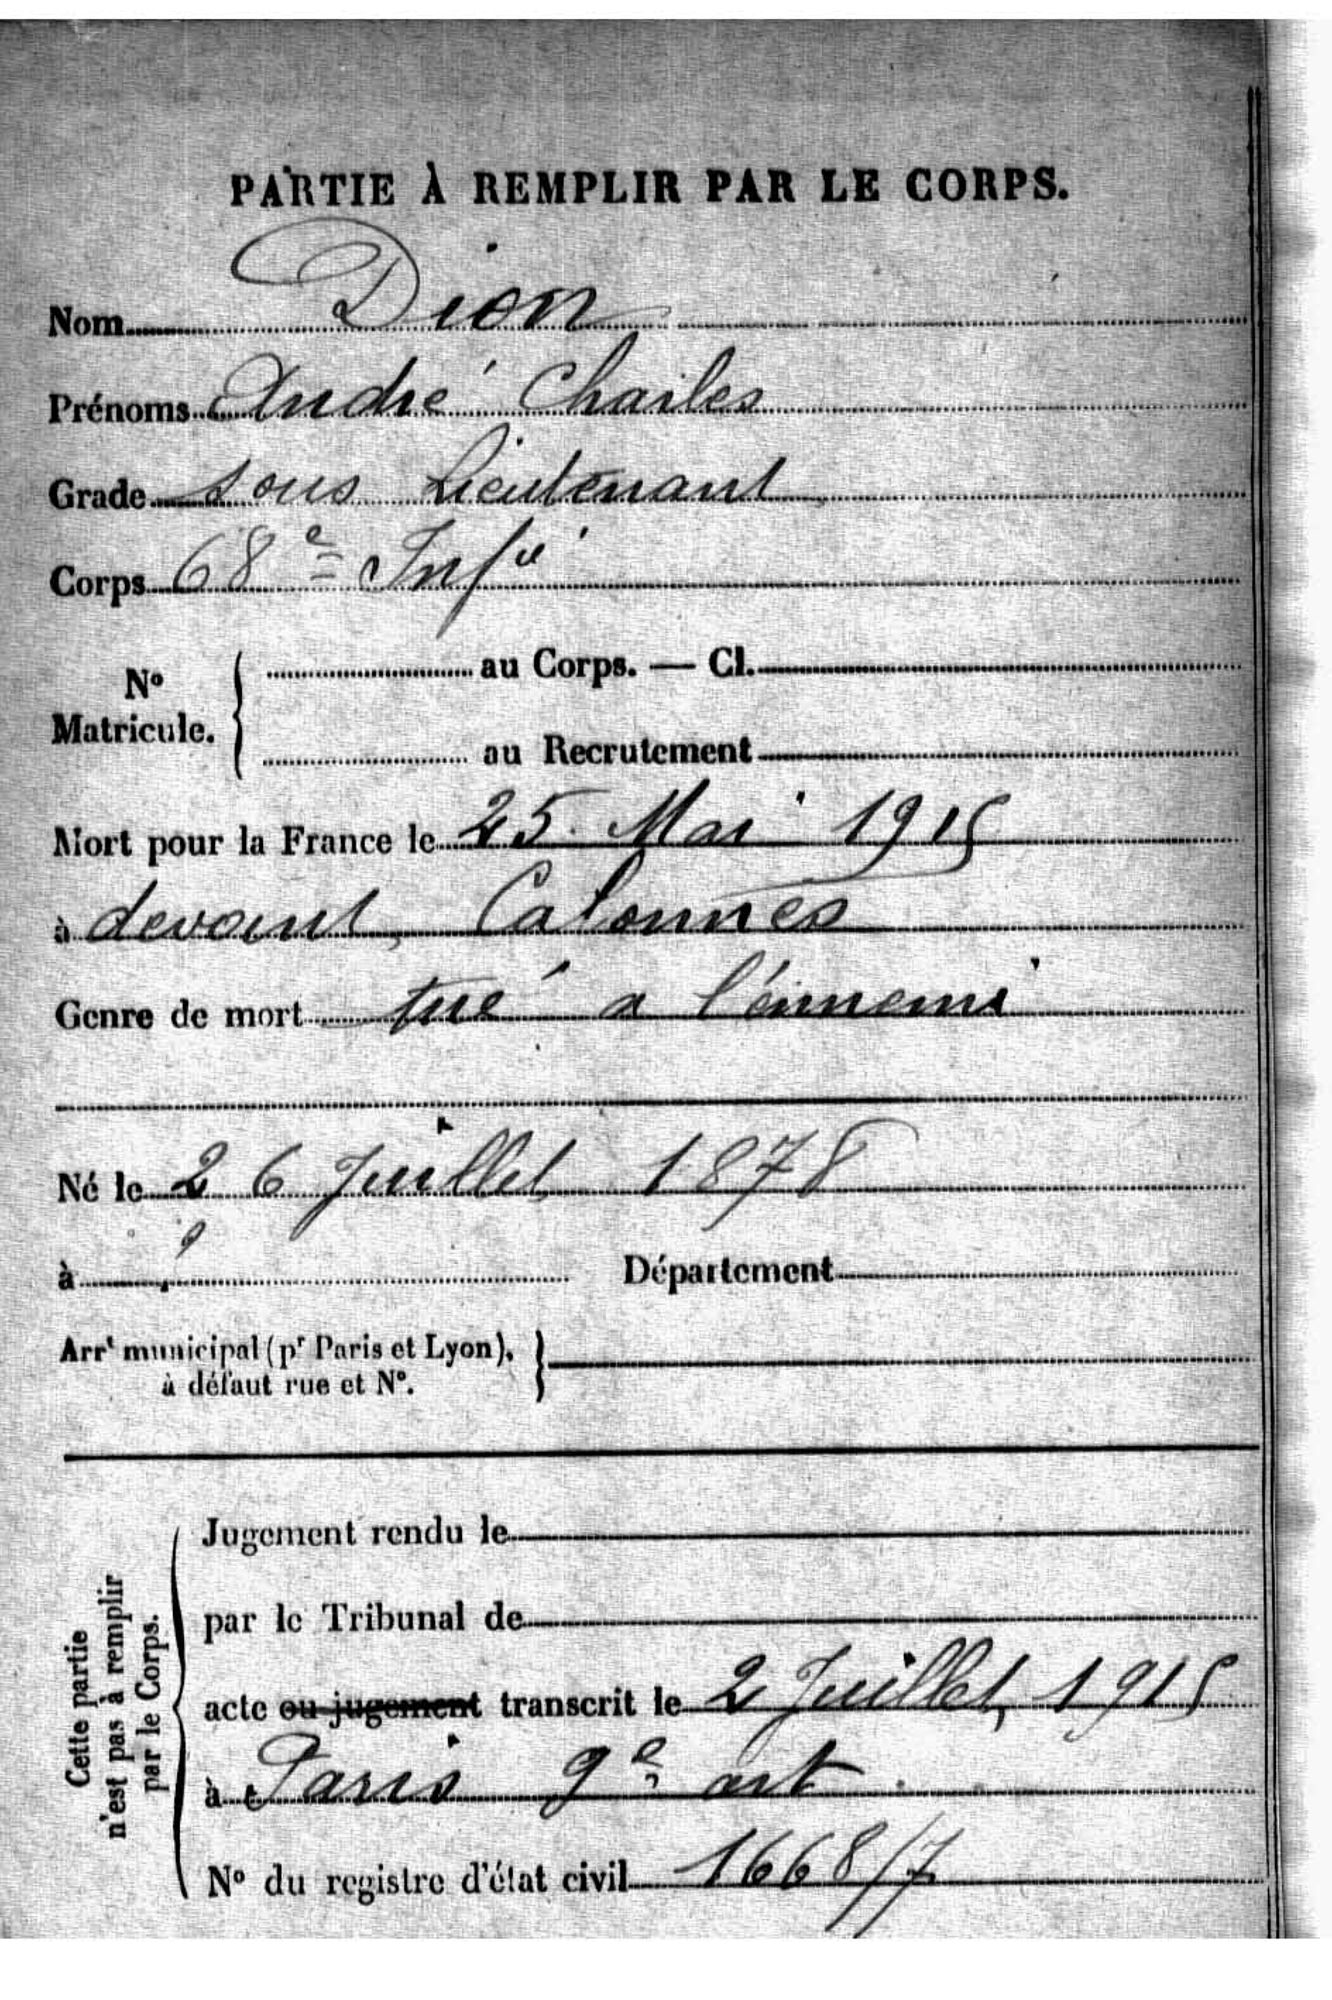 PARTIE À REMPLIR PAR LE CORPS.
Nom Dion
Prénoms André Charles
Grade sous Lieutenant
Corps 68e Infie
No
Matricule.
au Corps. — Cl.
au Recrutement
Mort pour la France le 25 Mai 1915
à devant Calonnes
Genre de mort tué a l'ennemi
Né le 26 Juillet 1878
à ?
Département
Arrt municipal (pr Paris et Lyon),
à défaut rue et No.
Cette partie
n'est pas à remplir
par le Corps.
Jugement rendu le
par le Tribunal de
acte ou jugement transcrit le 2 Juillet 1915
à Paris 9e art
No du registre d'état civil 1668/7